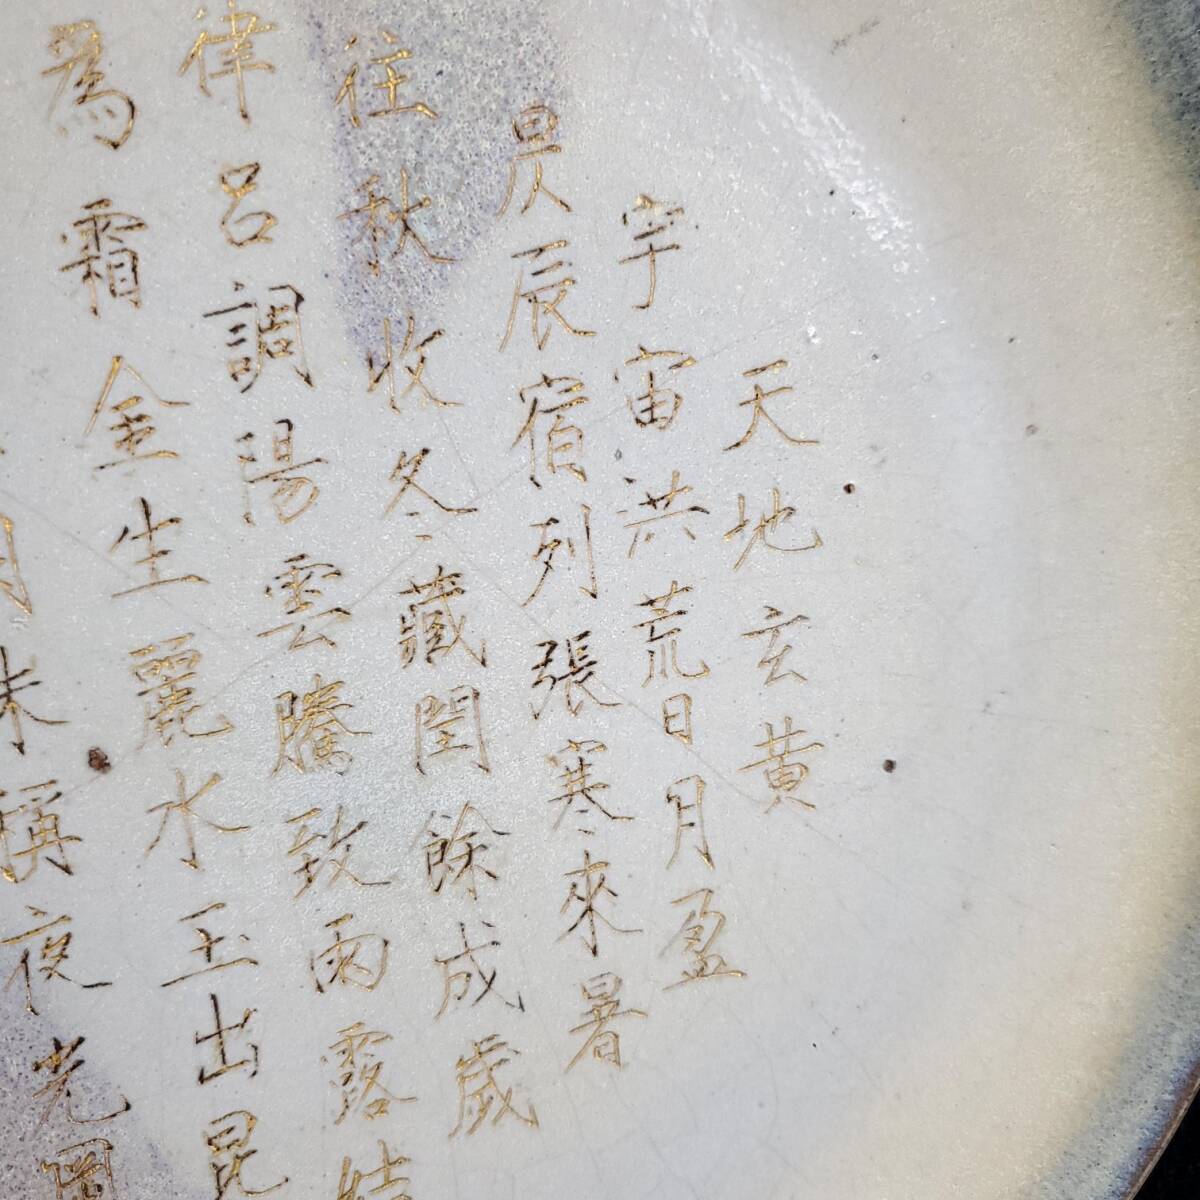 天地玄黄
宇宙洪荒日月盈
昃辰宿列張寒來暑
往秋收冬藏閏餘成歲
律呂調陽雲騰致雨露結
爲霜金生麗水玉出昆
珠稱夜光